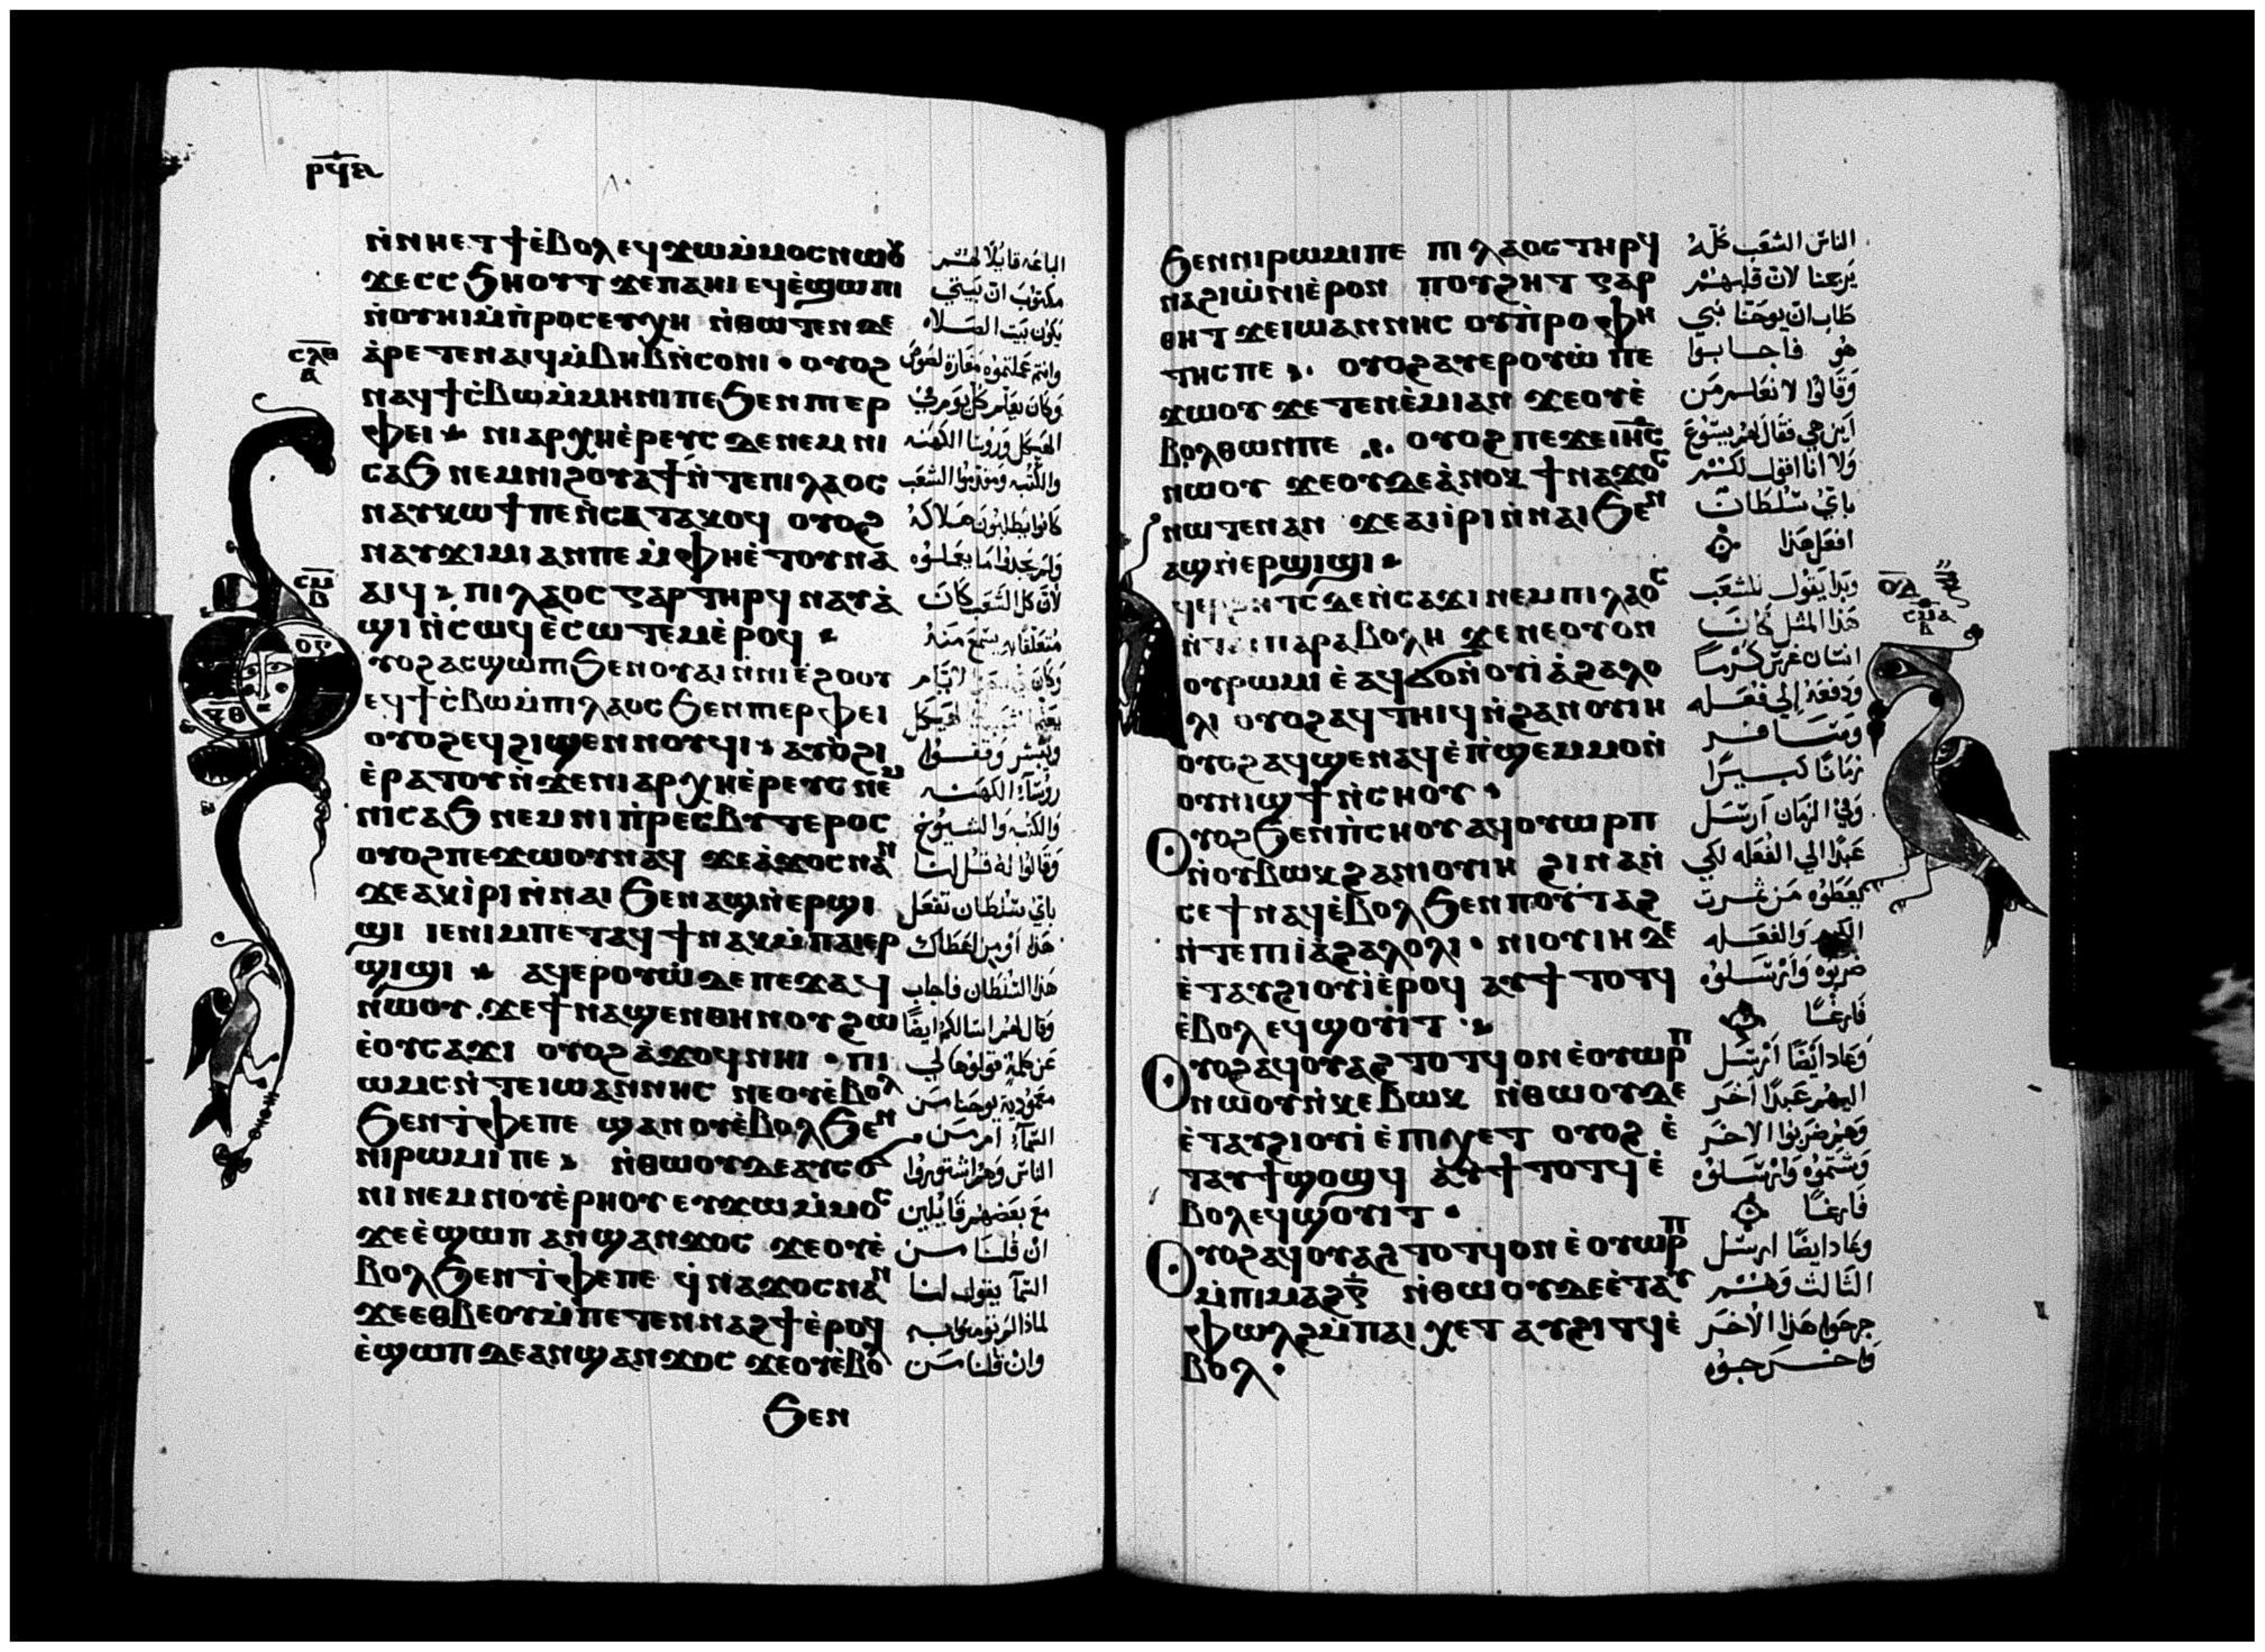 ⲣϥⲁ
ⲛ̀ⲛⲏⲉⲧϯⲉ̀ⲃⲟⲗ ⲉϥϫⲱⲙ̀ⲙⲟⲥⲛⲱⲟⲩ
ϫⲉⲥⲥϧⲏⲟⲩⲧ ϫⲉⲡⲁⲏⲓ ⲉϥⲉ̀ϣⲱⲡⲓ
ⲛ̀ⲟⲩⲏⲓⲙ̀ⲡⲣⲟⲥⲉⲩⲭⲏ ⲛ̀ⲑⲱⲧⲉⲛⲇⲉ
ⲥⲗⲑ
ⲁ̀ⲣⲉⲧⲉⲛⲁⲓϥⲙ̀ⲃⲏⲃⲛ̀ⲥⲟⲛⲓ · ⲟⲩⲟϩ
ⲛⲁϥϯⲥ̀ⲃⲱⲙ̀ⲙⲏⲛⲓⲡⲉϧⲉⲛⲡⲓⲉⲣ
ⲫⲉⲓ ⲛⲓⲁⲣⲭⲏⲉ̀ⲣⲉⲩⲥ ⲇⲉⲛⲉⲙⲛⲓ
ⲥⲁϧ ⲛⲉⲙⲛⲓϩⲟⲩⲁϯⲛ̀ⲧⲉⲡⲓⲗⲁⲟⲥ
ⲛⲁⲩⲕⲱϯⲡⲉⲛ̀ⲥⲁⲧⲁⲕⲟϥ ⲟⲩⲟϩ
ⲛⲁⲩϫⲓⲙⲓⲁⲛⲡⲉ ⲙ̀ⲫⲏⲉ̀ⲧⲟⲩⲛⲁ
ⲁⲓϥ ⲡⲓⲗⲁⲟⲥ ⲅⲁⲣⲧⲏⲣϥ ⲛⲁⲩⲁ̀
ϣⲓⲛ̀ⲥⲱϥ ⲉ̀ⲥⲱⲧⲉⲙⲉ̀ⲣⲟϥ
ⲩⲟϩⲁⲥϣⲱⲡⲓ ϧⲉⲛⲟⲩⲁⲓⲛ̀ⲛⲓⲉ̀ϩⲟⲟⲩ
ⲉϥϯⲥ̀ⲃⲱⲙ̀ⲡⲓⲗⲁⲟⲥ ϧⲉⲛⲡⲓⲉⲣⲫⲉⲓ
ⲟⲩⲟϩⲉϥϩⲓϣⲉⲛⲛⲟⲩϥⲓ ⲁⲩⲟ̀ϩⲓ
ⲉ̀ⲣⲁⲧⲟⲩⲛ̀ϫⲉⲛⲓⲁⲣⲭⲏⲉ̀ⲣⲉⲩⲥ ⲛⲉⲙ
ⲛⲓⲥⲁϧ ⲛⲉⲙⲛⲓⲡ̀ⲣⲉⲥⲃⲩⲧⲉⲣⲟⲥ
ⲟⲩⲟϩⲡⲉϫⲱⲟⲩⲛⲁϥ ϫⲉⲁ̀ϫⲟⲥⲛⲁⲛ
ϫⲉⲁⲕⲓ̀ⲣⲓⲛ̀ⲛⲁⲓ ϧⲉⲛⲁϣⲛ̀ⲉⲣϣⲓ
ϣⲓ ⲓⲉⲛⲓⲙⲡⲉⲧⲁϥϯⲛⲁⲕⲙ̀ⲡⲁⲓⲉⲣ
ϣⲓϣⲓ ⲁϥⲉⲣⲟⲩⲱ̀ⲇⲉ ⲡⲉϫⲁϥ
ⲛ̀ⲱⲟⲩ ϫⲉϯⲛⲁϣⲉⲛⲑⲏⲛⲟⲩϩⲱ
ⲉ̀ⲟⲩⲥⲁϫⲓ ⲟⲩⲟϩ ⲁ̀ϫⲟϥⲛⲏⲓ · ⲡⲓ
ⲱⲙⲥⲛ̀ⲧⲉⲓⲱⲁⲛⲛⲏⲥ ⲛⲉⲟⲩⲉ̀ⲃⲟⲗ
ϧⲉⲛⲧ̀ⲫⲉⲡⲉ ϣⲁⲛⲟⲩⲉ̀ⲃⲟⲗϧⲉⲛ
ⲛⲓⲣⲱⲙⲓⲡⲉ ⲛ̀ⲑⲱⲟⲩⲇⲉⲁⲩⲥⲟϭ
ⲛⲓ ⲛⲉⲙⲛⲟⲩⲉ̀ⲣⲏⲟⲩ ⲉⲩϫⲱⲙ̀ⲙⲟⲥ
ϫⲉⲉ̀ϣⲱⲡ ⲁⲛϣⲁⲛϫⲟⲥ ϫⲉⲟⲩⲉ̀
ⲃⲟⲗϧⲉⲛⲧ̀ⲫⲉⲡⲉ ϥ̀ⲛⲁϫⲟⲥⲛⲁⲛ
ϫⲉⲉⲑⲃⲉⲟⲩⲙ̀ⲡⲉⲧⲉⲛⲛⲁϩϯⲉ̀ⲣⲟϥ
ⲉ̀ϣⲱⲡ ⲇⲉⲁⲛϣⲁⲛϫⲟⲥ ϫⲉⲟⲩⲉ̀ⲃⲟⲗ
ϧⲉⲛ
الباعه قايلا لهم
مكتوب ان بيتي
يكون بيت الصلاه
وانتم عملتموه مغارة لصوص
وكان يعلم كل يوم في
الهيكل وروسا الكهنه
والكتبه ومقدموا الشعب
كانوا يطلبون هلاكه
ولم يجدوا ما يعملوه
لان كل الشعب كان
متعلقا به يسمع منه
ويبشر وقفوا
روسآء الكهنه
والكتبه والشيوخ
وقالوا له قل لنا
باي سلطان تفعل
هذا او من اعطاك
هذا السلطان فاجاب
وقال لهم اسالكم ايضا
عن كلمة قولوها لي
معمودية يوحنا من
السمآء ام من
الناس وهم اشتوروا
مع بعضهم قايلين
ان قلنا من
السمآ يقول لنا
لماذا لم تومنوا به
وان قلنا من
ϧⲉⲛⲛⲓⲣⲱⲙⲓⲡⲉ ⲡⲓⲗⲁⲟⲥ ⲧⲏⲣϥ
ⲛⲁϩⲓⲱ̀ⲛⲓⲉ̀ⲣⲟⲛ ⲡⲟⲩϩⲏⲧ ⲅⲁⲣ
ⲑⲏⲧ ϫⲉⲓⲱⲁⲛⲛⲏⲥ ⲟⲩⲡ̀ⲣⲟⲫⲏ
ⲧⲏⲥⲡⲉ ⲟⲩⲟϩⲁⲩⲉⲣⲟⲩⲱ̀ ⲡⲉ
ϫⲱⲟⲩ ϫⲉⲧⲉⲛⲉ̀ⲙⲓⲁⲛ ϫⲉⲟⲩⲉ̀
ⲃⲟⲗⲑⲱⲛⲡⲉ ⲟⲩⲟϩ ⲡⲉϫⲉⲓⲏⲥ
ⲛⲱⲟⲩ ϫⲉⲟⲩⲇⲉⲁ̀ⲛⲟⲕ ϯⲛⲁϫⲟⲥ
ⲛⲱⲧⲉⲛⲁⲛ ϫⲉⲁⲓⲓ̀ⲣⲓⲛ̀ⲛⲁⲓϧⲉⲛ
ⲁϣⲛ̀ⲉⲣϣⲓϣⲓ
ⲇⲉⲛ̀ⲥⲁϫⲓ ⲛⲉⲙⲡⲓⲗⲁⲟⲥ
ⲡⲁⲣⲁⲃⲟⲗⲏ ϫⲉⲛⲉⲟⲩⲟⲛ
ⲟⲩⲣⲱⲙⲓ ⲉ̀ⲁϥϭⲟⲛ̀ⲟⲩⲓ̀ⲁ̀ϩⲁⲗⲟ
ⲗⲓ ⲟⲩⲟϩⲁϥⲧⲏⲓϥⲛ̀ϩⲁⲛⲟⲩⲓⲏ
ⲟⲩⲟϩⲁϥϣⲉⲛⲁϥⲉ̀ⲡ̀ϣⲉⲙⲙⲟⲛ̀
ⲟⲩⲛⲓϣϯⲛ̀ⲥⲏⲟⲩ
Ⲟⲩⲟϩϧⲉⲛⲡ̀ⲥⲏⲟⲩ ⲁϥⲟⲩⲱⲣⲡ
ⲛ̀ⲟⲩⲃⲱⲕϩⲁⲛⲓⲟⲩⲓⲏ ϩⲓⲛⲁⲛ̀
ⲥⲉϯⲛⲁϥⲉ̀ⲃⲟⲗϧⲉⲛⲡⲟⲩⲧⲁϩ
ⲛ̀ⲧⲉⲡⲓⲓ̀ⲁ̀ϩⲁⲗⲟⲗⲓ · ⲛⲓⲟⲩⲓⲏ ⲇⲉ
ⲉ̀ⲧⲁⲩϩⲓⲟⲩⲓ̀ⲉ̀ⲣⲟϥ ⲁⲩϯⲧⲟⲧϥ
ⲉ̀ⲃⲟⲗ ⲉϥϣⲟⲩⲓ̀ⲧ
Ⲟⲩⲟϩⲁϥⲟⲩⲁϩⲧⲟⲧϥⲟⲛ ⲉ̀ⲟⲩⲱⲣⲡ
ⲛⲱⲟⲩⲛ̀ⲕⲉⲃⲱⲕ ⲛ̀ⲑⲱⲟⲩⲇⲉ
ⲉ̀ⲧⲁⲩϩⲓⲟⲩⲓ̀ ⲉ̀ⲡⲓⲭⲉⲧ ⲟⲩⲟϩ ⲉ̀
ⲧⲁⲩϯϣⲟϣϥ ⲁⲩϯⲧⲟⲧϥ ⲉ̀
ⲃⲟⲗⲉϥϣⲟⲩⲓⲧ ·
Ⲟⲩⲟϩⲁϥⲟⲩⲁϩⲧⲟⲧϥⲟⲛ ⲉ̀ⲟⲩⲱⲣⲡ
ⲙ̀ⲡⲓⲙⲁϩⲅ̅ ⲛ̀ⲑⲱⲟⲩⲇⲉⲉ̀ⲧⲁⲩ
ⲫⲱⲗϩⲙ̀ⲡⲁⲓⲭⲉⲧ ⲁⲩϩⲓⲧϥⲉ̀
ⲃⲟⲗ ·
الناس الشعب كله
يرجمنا لان قلبهم
طاب ان يوحنا نبي
هو فاجابوا
وقالوا لا نعلم من
اين هي فقال لهم يسوع
ولا انا اقول لكم
باي سلطان
افعل هذا
وبدا يقول للشعب
هذا المثل كان
انسان غرس كرما
ودفعه الي فعله
وسافر
زمانا كبيرا
وفي الزمان ارسل
عبدا الي الفعله لكي
يعطوه من ثمرت
الكرم والفعله
ضربوه وارسلوه
فارغا
وعاد ايضا ارسل
اليهم عبدا اخر
وهم ضربوا الاخر
وشتموه وارسلوه
فارغا
وعاد ايضا ارسل
الثالث وهم
جرحوا هذا الاخر
واخرجوه